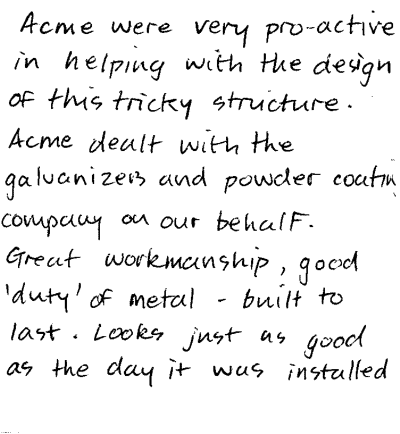 Acme were very pro-active
in helping with the design
of this tricky structure.
Acme dealt with the
galvanizers and powder coatin
company on our behalf.
Great workmanship, good
'duty' of metal - built to
last. Looks just as good
as the day it was installed